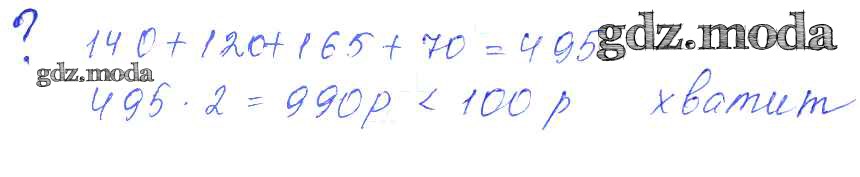 ? 140+120+165+70=495 gdz.moda
gdz.moda
495·2=990р<100р хватит